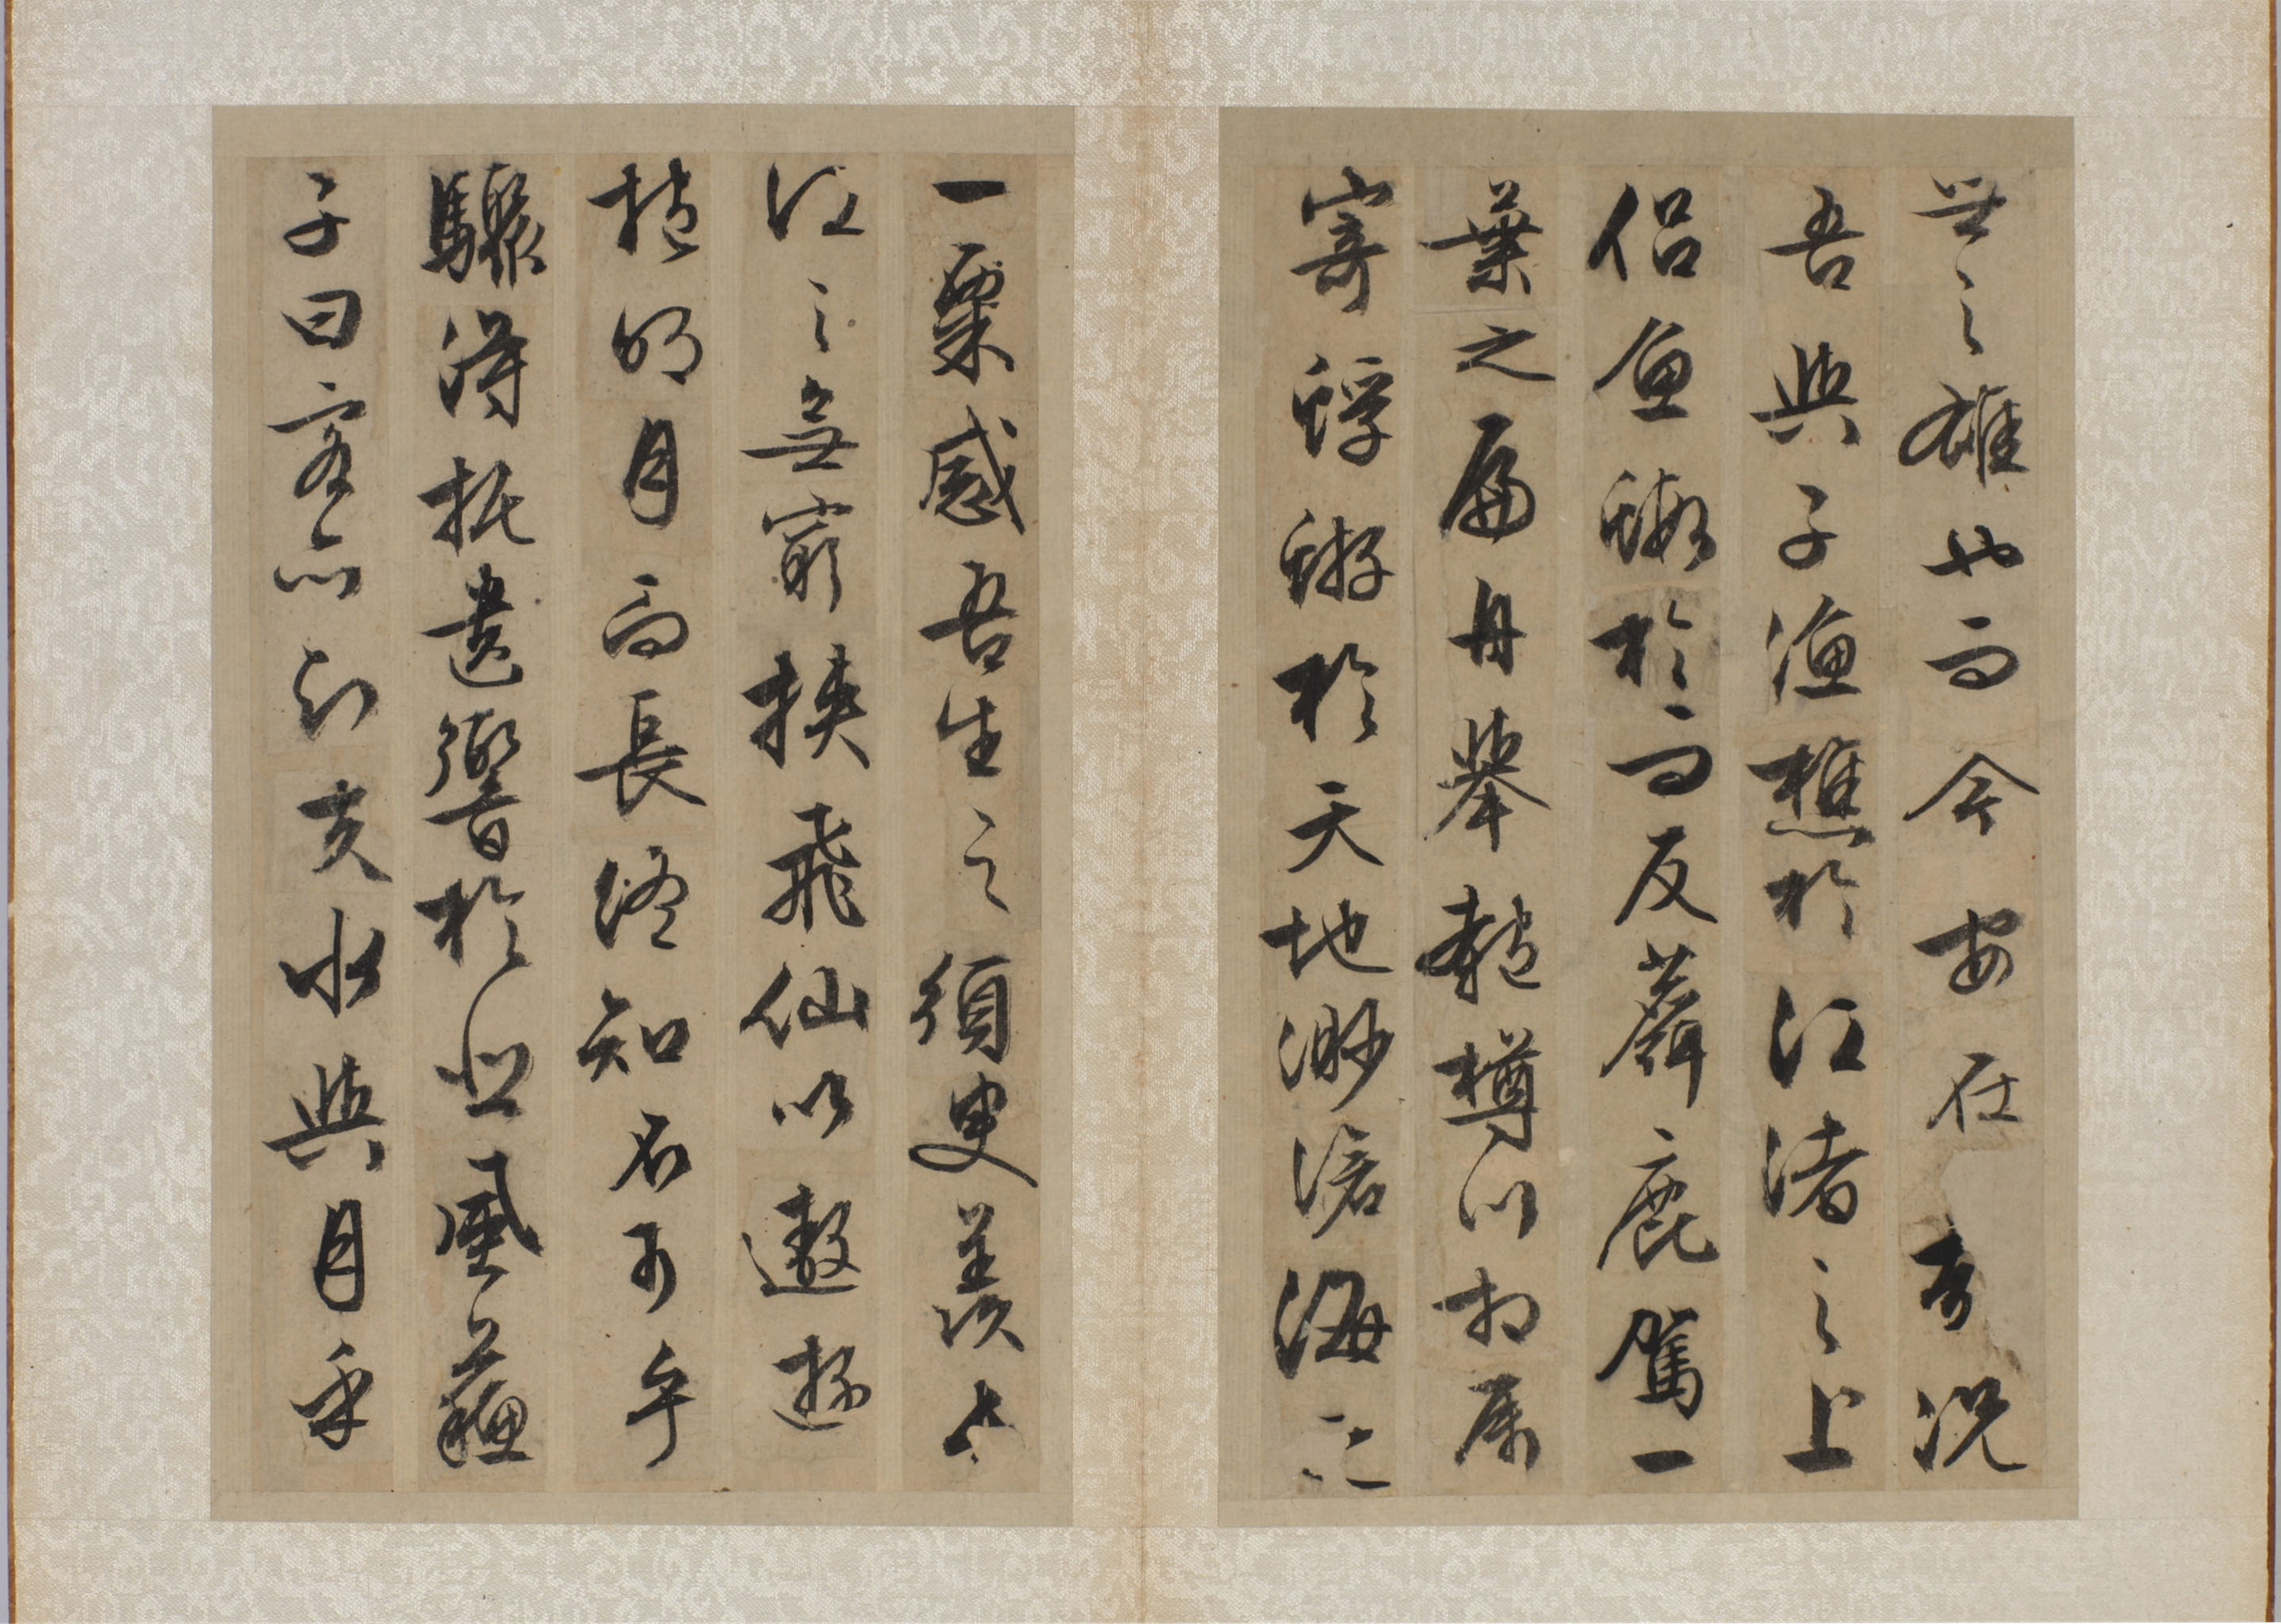 世之雄也而今安在哉況
吾與子漁樵於江渚之上
侶魚蝦於而友麋鹿駕一
葉之扁舟舉匏樽以相属
寄蜉蝣於天地渺滄海之
一粟感吾生之須臾羨長
江之無窮挾飛仙以遨遊
抱明月而長終知不可乎
驟得托遺響於悲風蘇
子曰客亦知夫水與月乎